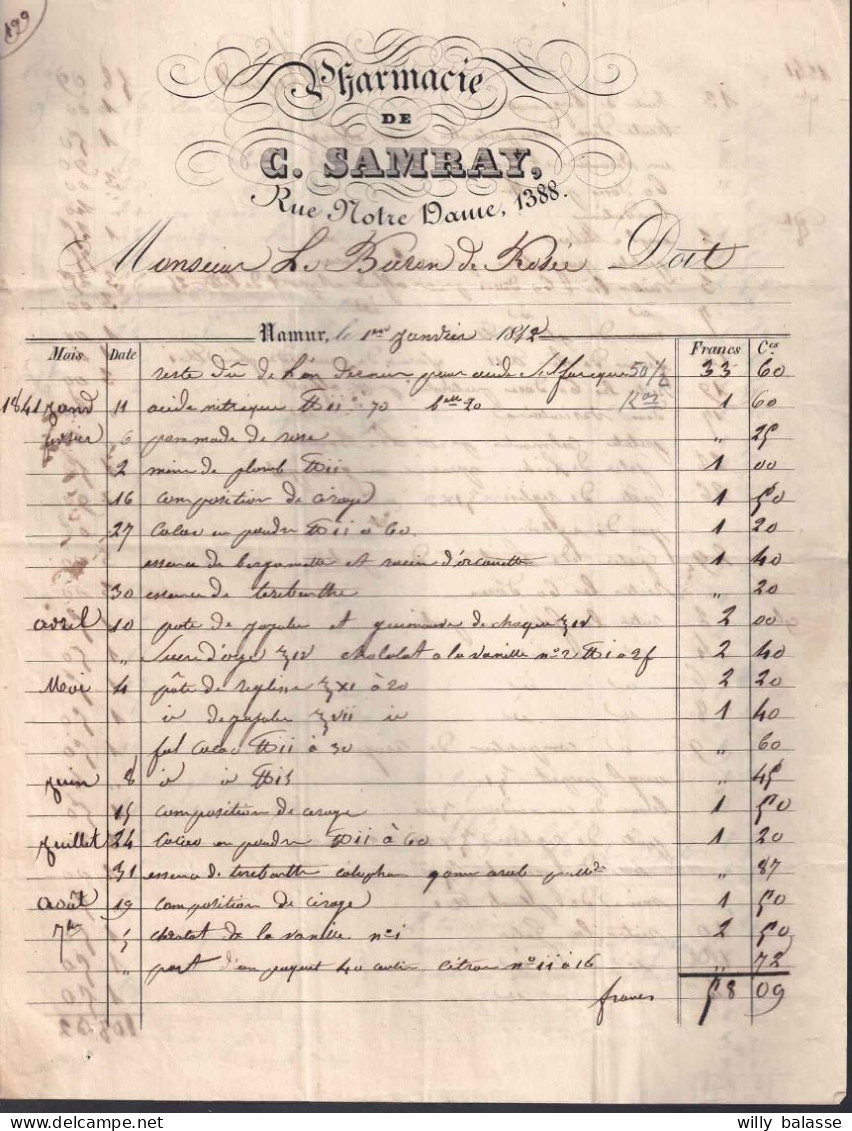 199
Pharmacie
DE
C. SAMRAY,
Rue Notre Dame, 1388.
Monsieur Le Baron de Rosée Doit
Namur, le 1er Janvier 1842
Mois Date Francs Ces
reste dû de l'an dernier pour acide sulfurique 50 33 60
1841 janv 11 acide nitrique ℔ii 70 1 60
fevrier 6 pommade de rose " 25
2 mine de plomb ℔ii 1 00
16 composition de cirage 1 50
27 cacao en poudre ℔ii à 60 1 20
essence de bergamotte et racine d'orcanette 1 40
30 essence de terebenthe " 20
avril 10 pate de jujube et guimauve de chaque ℥iv 2 00
" sucre d'orge ℥iv chocolat a la vanille no 2 ℔i à 2f 2 40
Mai 4 pâte de reglisse ℥xi à 20 2 20
id de jujube ℥vii id 1 40
cacao ℔ii à 30 " 60
juin 8 id id ℔iß " 45
15 composition de cirage 1 50
juillet 24 cacao en poudre ℔ii à 60 1 20
31 essence de terebenthe colophane gomme arab " 87
août 19 composition de cirage 1 50
7bre 5 chocolat de la vanille no 1 2 50
" port d'un paquet 40 citron no ii à 16 " 72
francs 58 09
willy balasse